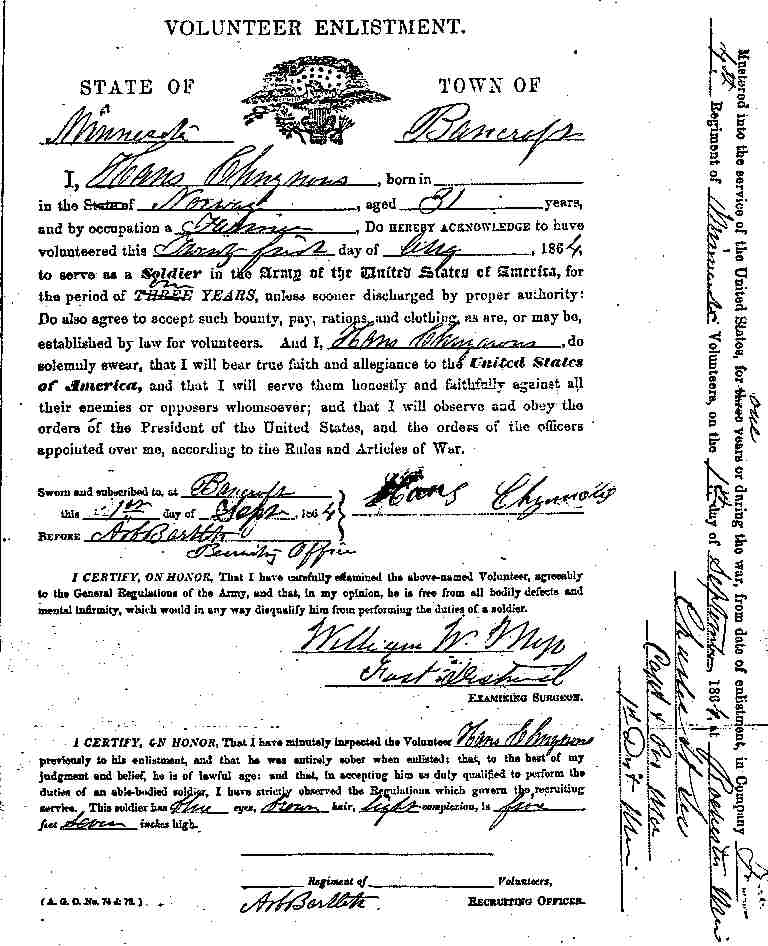 VOLUNTEER ENLISTMENT.
STATE OF TOWN OF
Minnesota Bancroft
I, Hans , born in
in the State of Norway , aged 31 years,
and by occupation a Farmer , DO HEREBY ACKNOWLEDGE to have
volunteered this Twenty first day of Aug , 1864,
to serve as a Soldier in the Army of the United States of America, for
one
the period of THREE YEARS, unless sooner discharged by proper authority:
Do also agree to accept such bounty, pay, rations, and clothing, as are, or may be,
established by law for volunteers. And I, Hans , do
solemnly swear, that I will bear true faith and allegiance to the United States
of America, and that I will serve them honestly and faithfully against all
their enemies or opposers whomsoever; and that I will observe and obey the
orders of the President of the United States, and the orders of the officers
appointed over me, according to the Rules and Articles of War.
Sworn and subscribed to, at Bancroft
this 1st day of Sept , 1864
Hans
BEFORE Bartlett
Recruiting Officer
I CERTIFY, ON HONOR, That I have carefully examined the above-named Volunteer, agreeably
to the General Regulations of the Army, and that, in my opinion, he is free from all bodily defects and
mental infirmity, which would in any way disqualify him from performing the duties of a soldier.
William W.
EXAMINING SURGEON.
I CERTIFY, ON HONOR, That I have minutely inspected the Volunteer Hans
previously to his enlistment, and that he was entirely sober when enlisted; that, to the best of my
judgment and belief, he is of lawful age: and that, in accepting him as duly qualified to perform the
duties of an able-bodied soldier, I have strictly observed the Regulations which govern the recruiting
service. This soldier has blue eyes, brown hair, light complexion, is five
feet seven inches high.
Regiment of Volunteers,
Bartlett RECRUITING OFFICER.
( A. G. O. No. 74 & 76. )
Mustered into the service of the United States, for three one years or during the war, from date of enlistment, in Company
Regiment of Minnesota Volunteers, on the 1st day of September 1864, at Rochester Min
Capt & Pro Mar
1st Dist Min